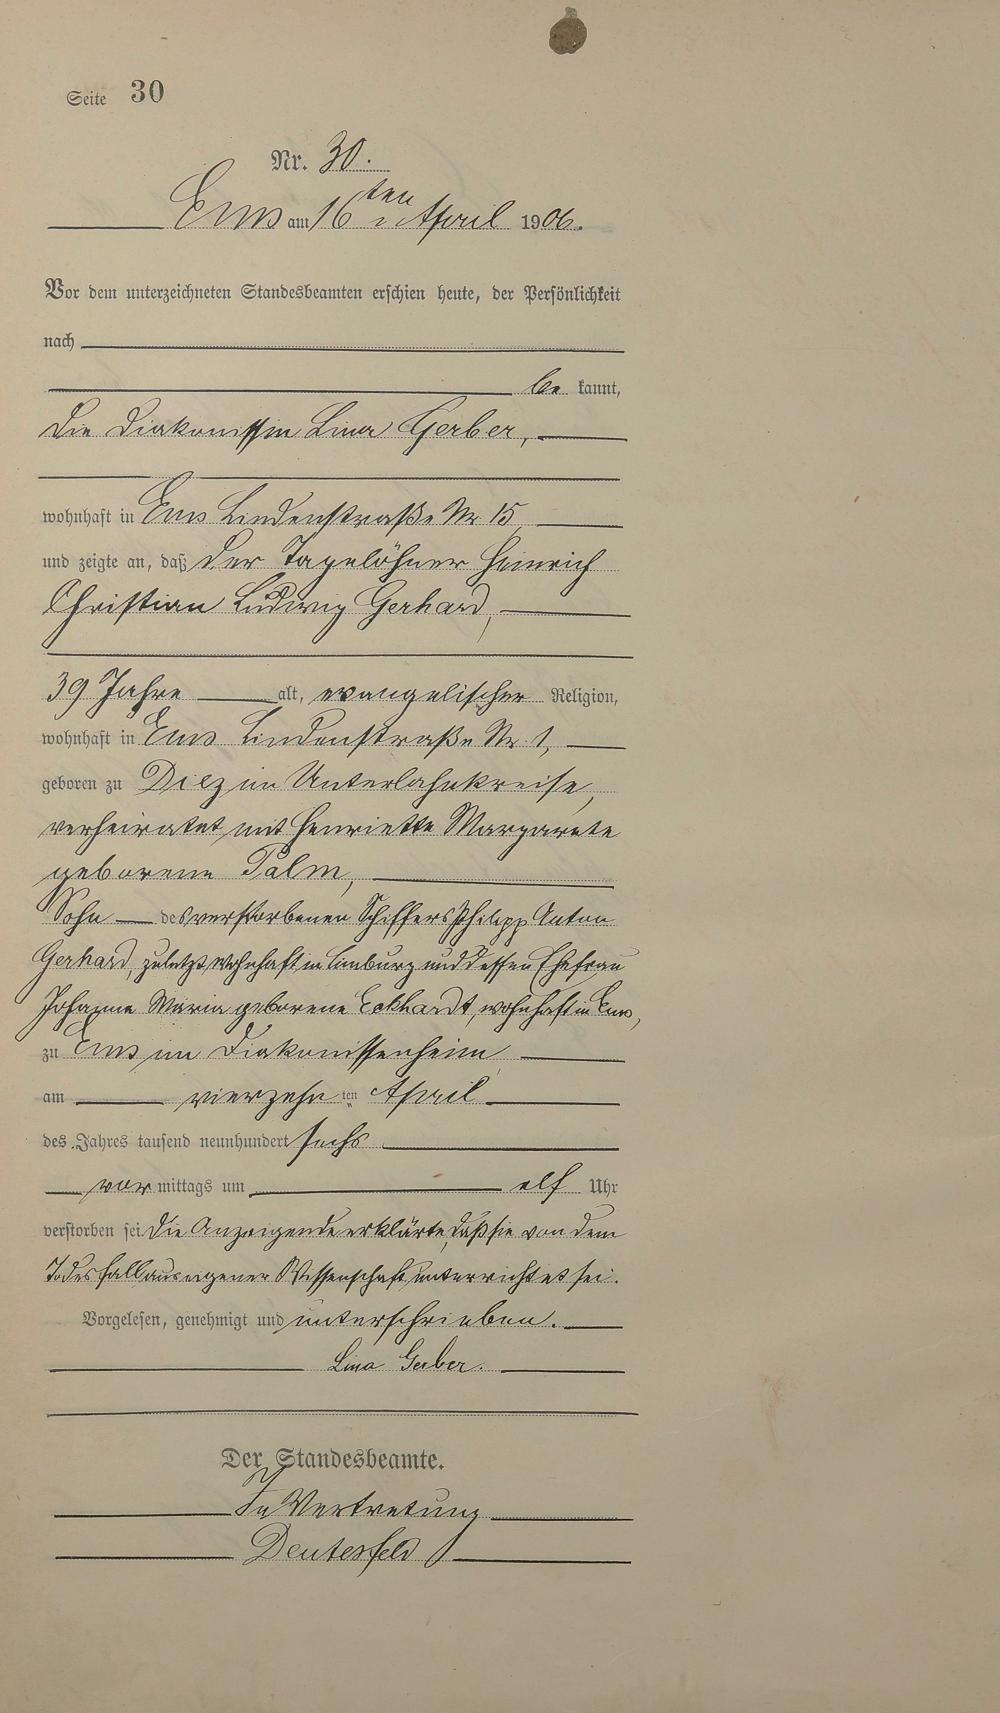 Seite 30
Nr. 30.
Ems am 16ten April 1906.
Vor dem unterzeichneten Standesbeamten erschien heute, der Persönlichkeit
nach
be kannt,
die Diakonissin Lina Gerber,
wohnhaft in Ems Lindenstraße Nr 15
und zeigte an, daß der Tagelöhner Heinrich
Christian Ludwig Gerhard,
39 Jahre alt, evangelischer Religion,
wohnhaft in Ems Lindenstraße Nr. 1,
geboren zu Diez im Unterlahnkreise,
verheiratet mit Henriette Margarete
geborene Palm,
Sohn des verstorbenen Schiffers Philipp Anton
Gerhard, zuletzt wohnhaft in Limburg und dessen Ehefrau
Johanne Maria geborene Eckhardt, wohnhaft in Ems,
zu Ems im Diakonissenheim
am vierzehn ten April
des Jahres tausend neunhundert sechs
vor mittags um elf Uhr
verstorben sei. Die Anzeigende erklärte, daß sie von dem
Todesfall aus eigener Wissenschaft unterrichtet sei.
Vorgelesen, genehmigt und unterschrieben.
Lina Gerber.
Der Standesbeamte.
In Vertretung
Deutesfeld